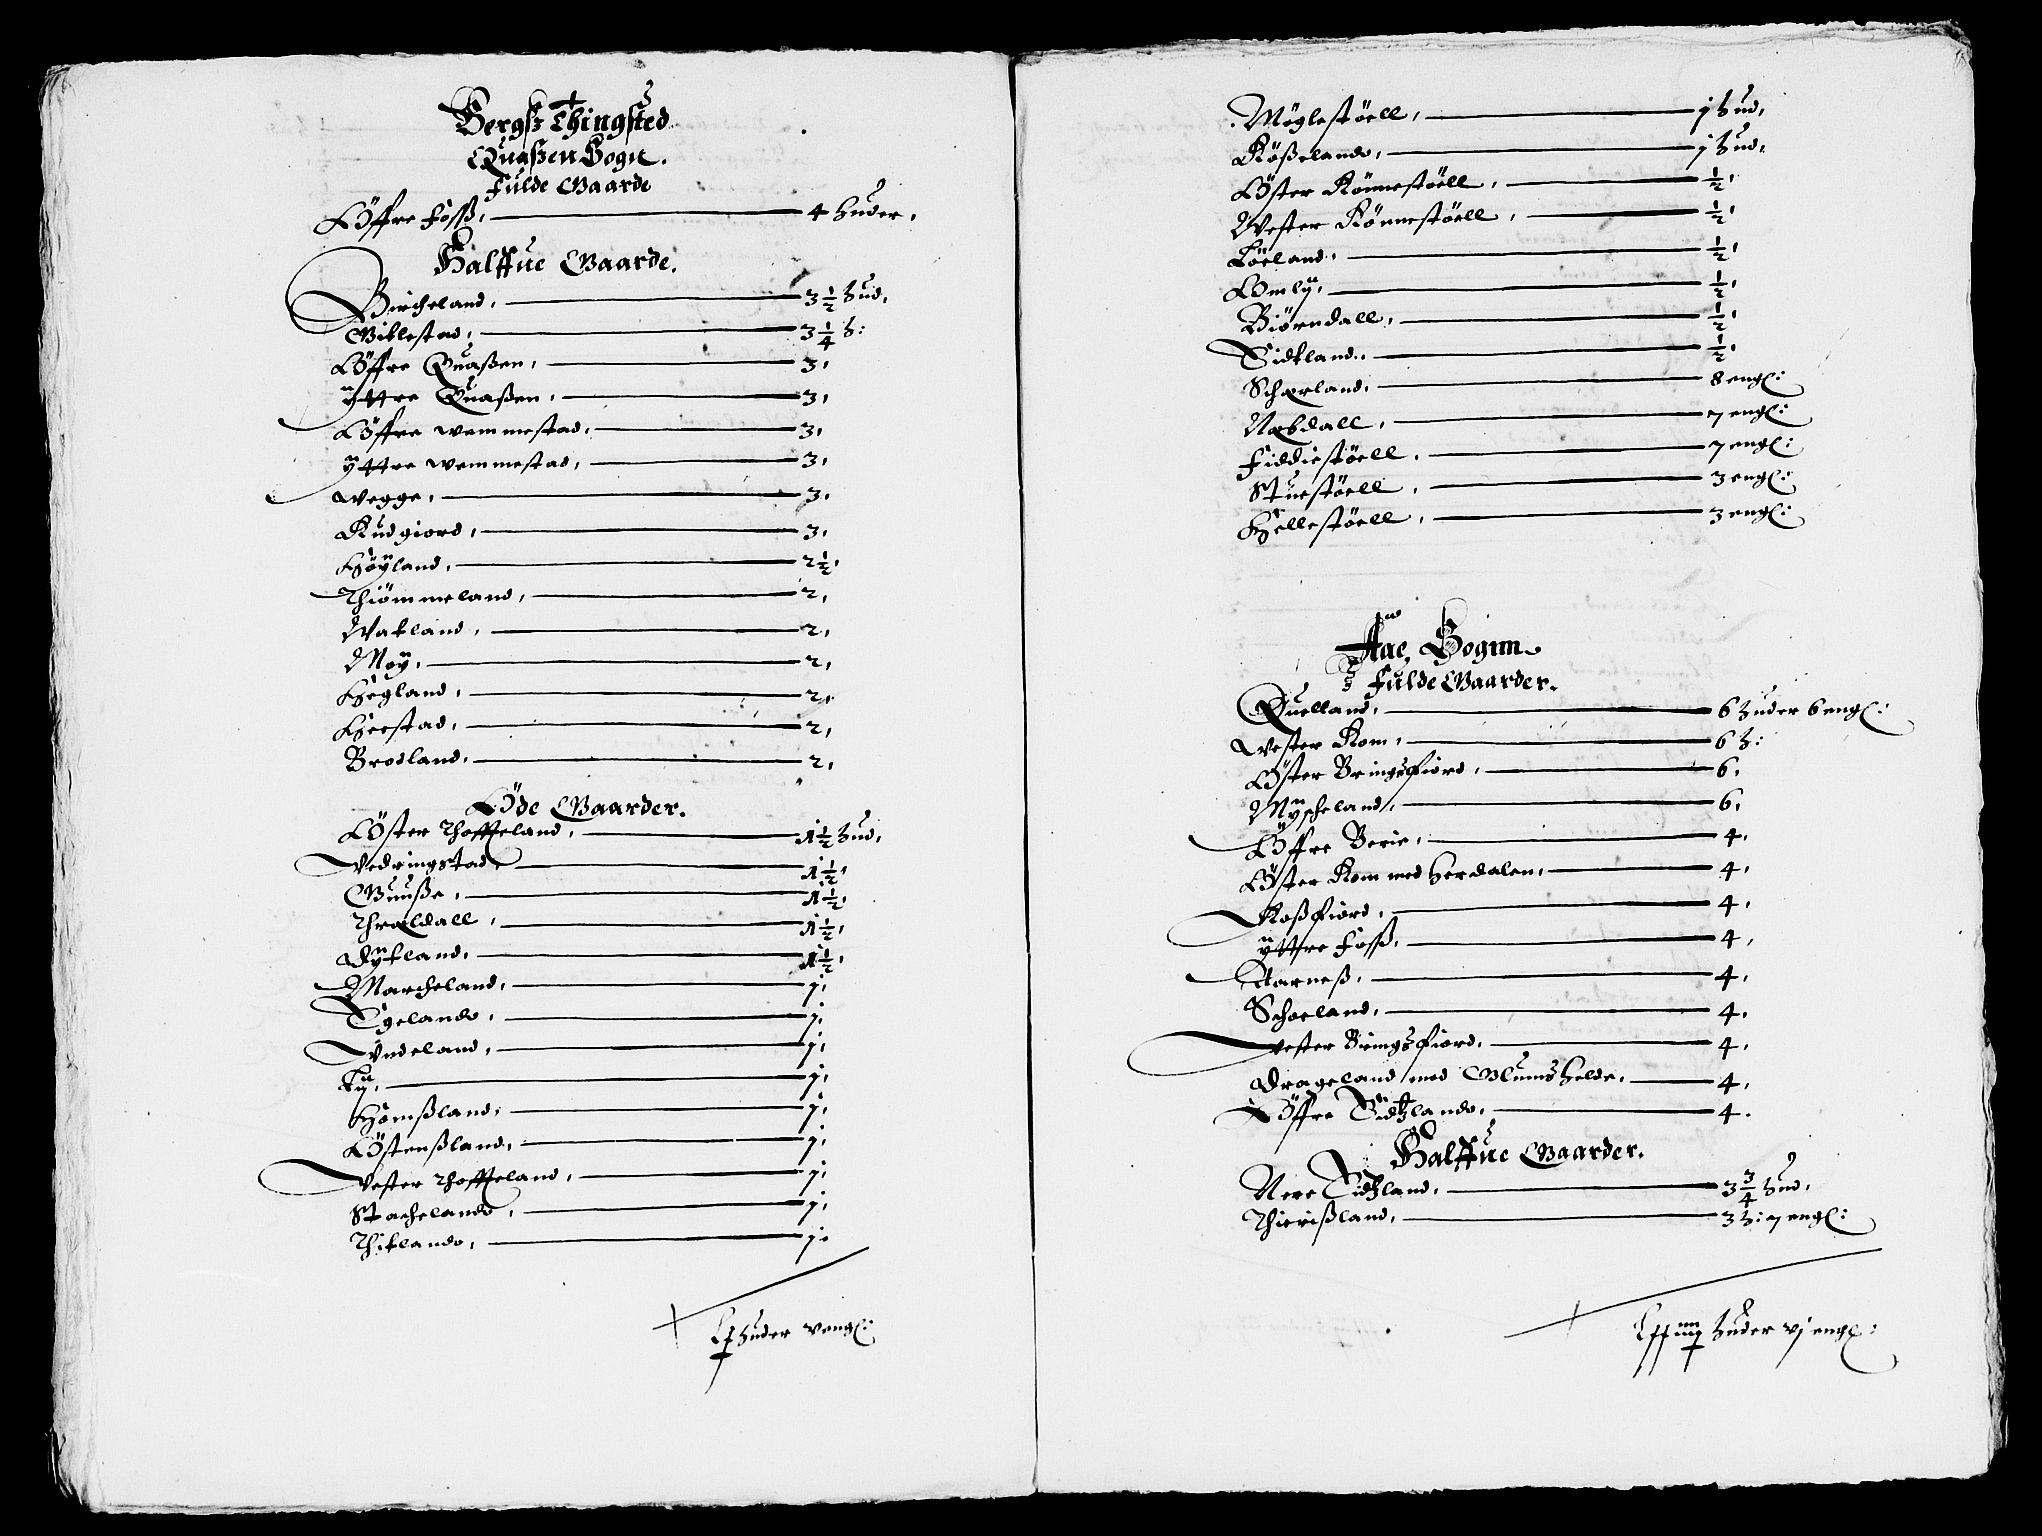 Bergs Thingsted
Quaßen Sogn.
Fulde Gaarde
Öffre Foss, 4 Huder,
Halffue Gaarde.
Bircheland, 3 1/2 Hud,
Gitlestad, 3 1/4 H:
Öffre Quaßen, 3,
Yttre Quaßen, 3,
Öffre Wemmestad, 3,
Yttre Wemmestad, 3,
Wegge, 3,
Rudgiord, 3,
Höyland, 2 1/2,
Thiömmeland, 2,
Watland, 2,
Moy, 2,
Hegland, 2,
Heestad, 2,
Brodland, 2,
Öde Gaarder.
Öster Thoffteland, 1 1/2 Hud,
Vedringstad 1 1/2,
Guuße, 1 1/2,
Thrældall, 1 1/2,
Dytland, 1 1/2,
Marcheland, j,
Egelando, j,
Yndeland, j,
Ly, j,
Homßland, j,
Östenßland, j,
Vester Thoffteland, j,
Stachelando, j,
Thitlando, j,
Huder v engl:
Möglestöell, j Hud,
Rößelando, j Hud,
Öster Rönnestöell, 1/2,
Wester Rönnestöell, 1/2,
Löeland, 1/2,
Omly, 1/2,
Biörndall, 1/2,
Eidtland, 1/2,
Scharland, 8 engl:
Nabdall, 7 engl:
Fiddiestöell, 7 engl:
Stuestöell, 3 engl:
Hellestöell, 3 engl:
Aae, Sognn.
Fulde Gaarder.
Quelland, 6 Huder 6 engl:
Wester Kom, 6 H:
Öster Bringsfiord, 6,
Myscheland, 6,
Öffre Berie, 4,
Öster Kom med Herdalen, 4,
Roßfiord, 4,
Yttre Foss, 4,
Aarneß, 4,
Schoeland, 4,
Vester Bringsfiord, 4,
Drageland med Glumshelde, 4,
Öffre Eidtzlando, 4.
Halffue Gaarder.
Nere Eidtzland, 3 3/4 Hud,
Thierißland, 3 H: 7 engl:
Huder vj engl: